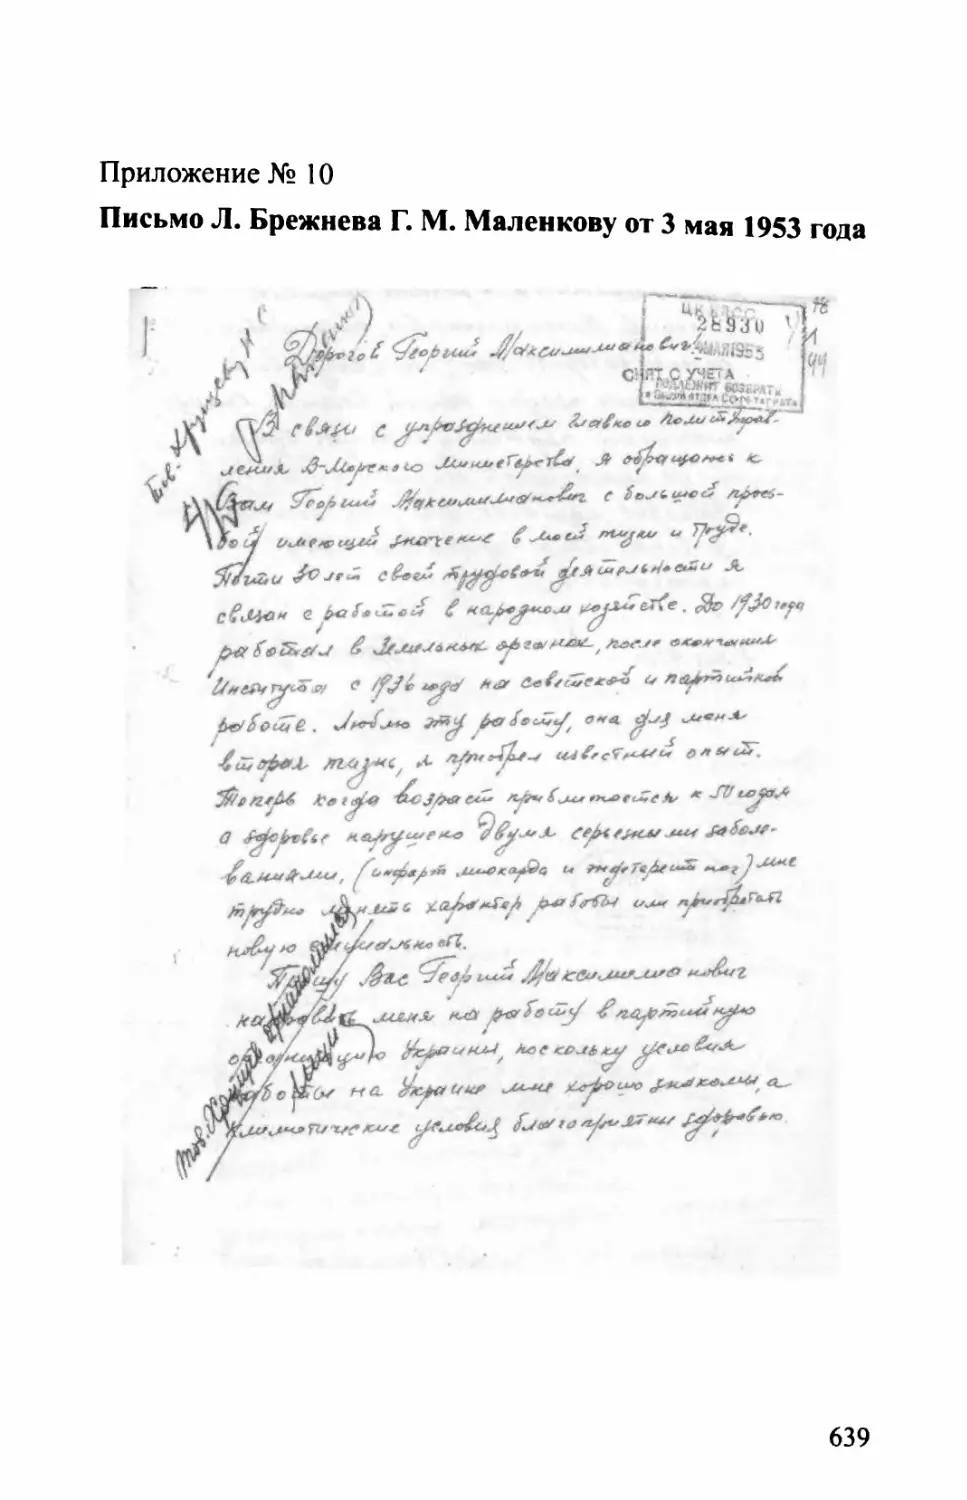 Приложение № 10
Письмо Л. Брежнева Г. М. Маленкову от 3 мая 1953 года
ЦК КПСС
28930
МАЯ 1953
СНЯТ С УЧЕТА
ПОДЛЕЖИТ ВОЗВРАТУ
Тов. Хрущеву Н С
Дорогой Георгий Максимилианович!
В связи с упразднением Главного Политуправ-
ления В-Морского Министерства, я обращаюсь к
Вам Георгий Максимилианович с большой прось-
бой имеющей значение в моей жизни и труде.
Почти 30 лет своей трудовой деятельности я
связан с работой в народном хозяйстве. До 1930 года
работал в Земельных органах, после окончания
Института с 1936 года на советской и партийной
работе. Люблю эту работу, она для меня
вторая жизнь, я приобрел известный опыт.
Теперь когда возраст приближается к 50 годам
а здоровье нарушено двумя серьезными заболе-
ваниями, (инфаркт миокарда и эндетереит ног) мне
трудно менять характер работы или приобретать
новую специальность.
Прошу Вас Георгий Максимилианович
направить меня на работу в партийную
организацию Украины, поскольку условия
работы на Украине мне хорошо знакомы, а
климатические условия благоприятны здоровью.
639